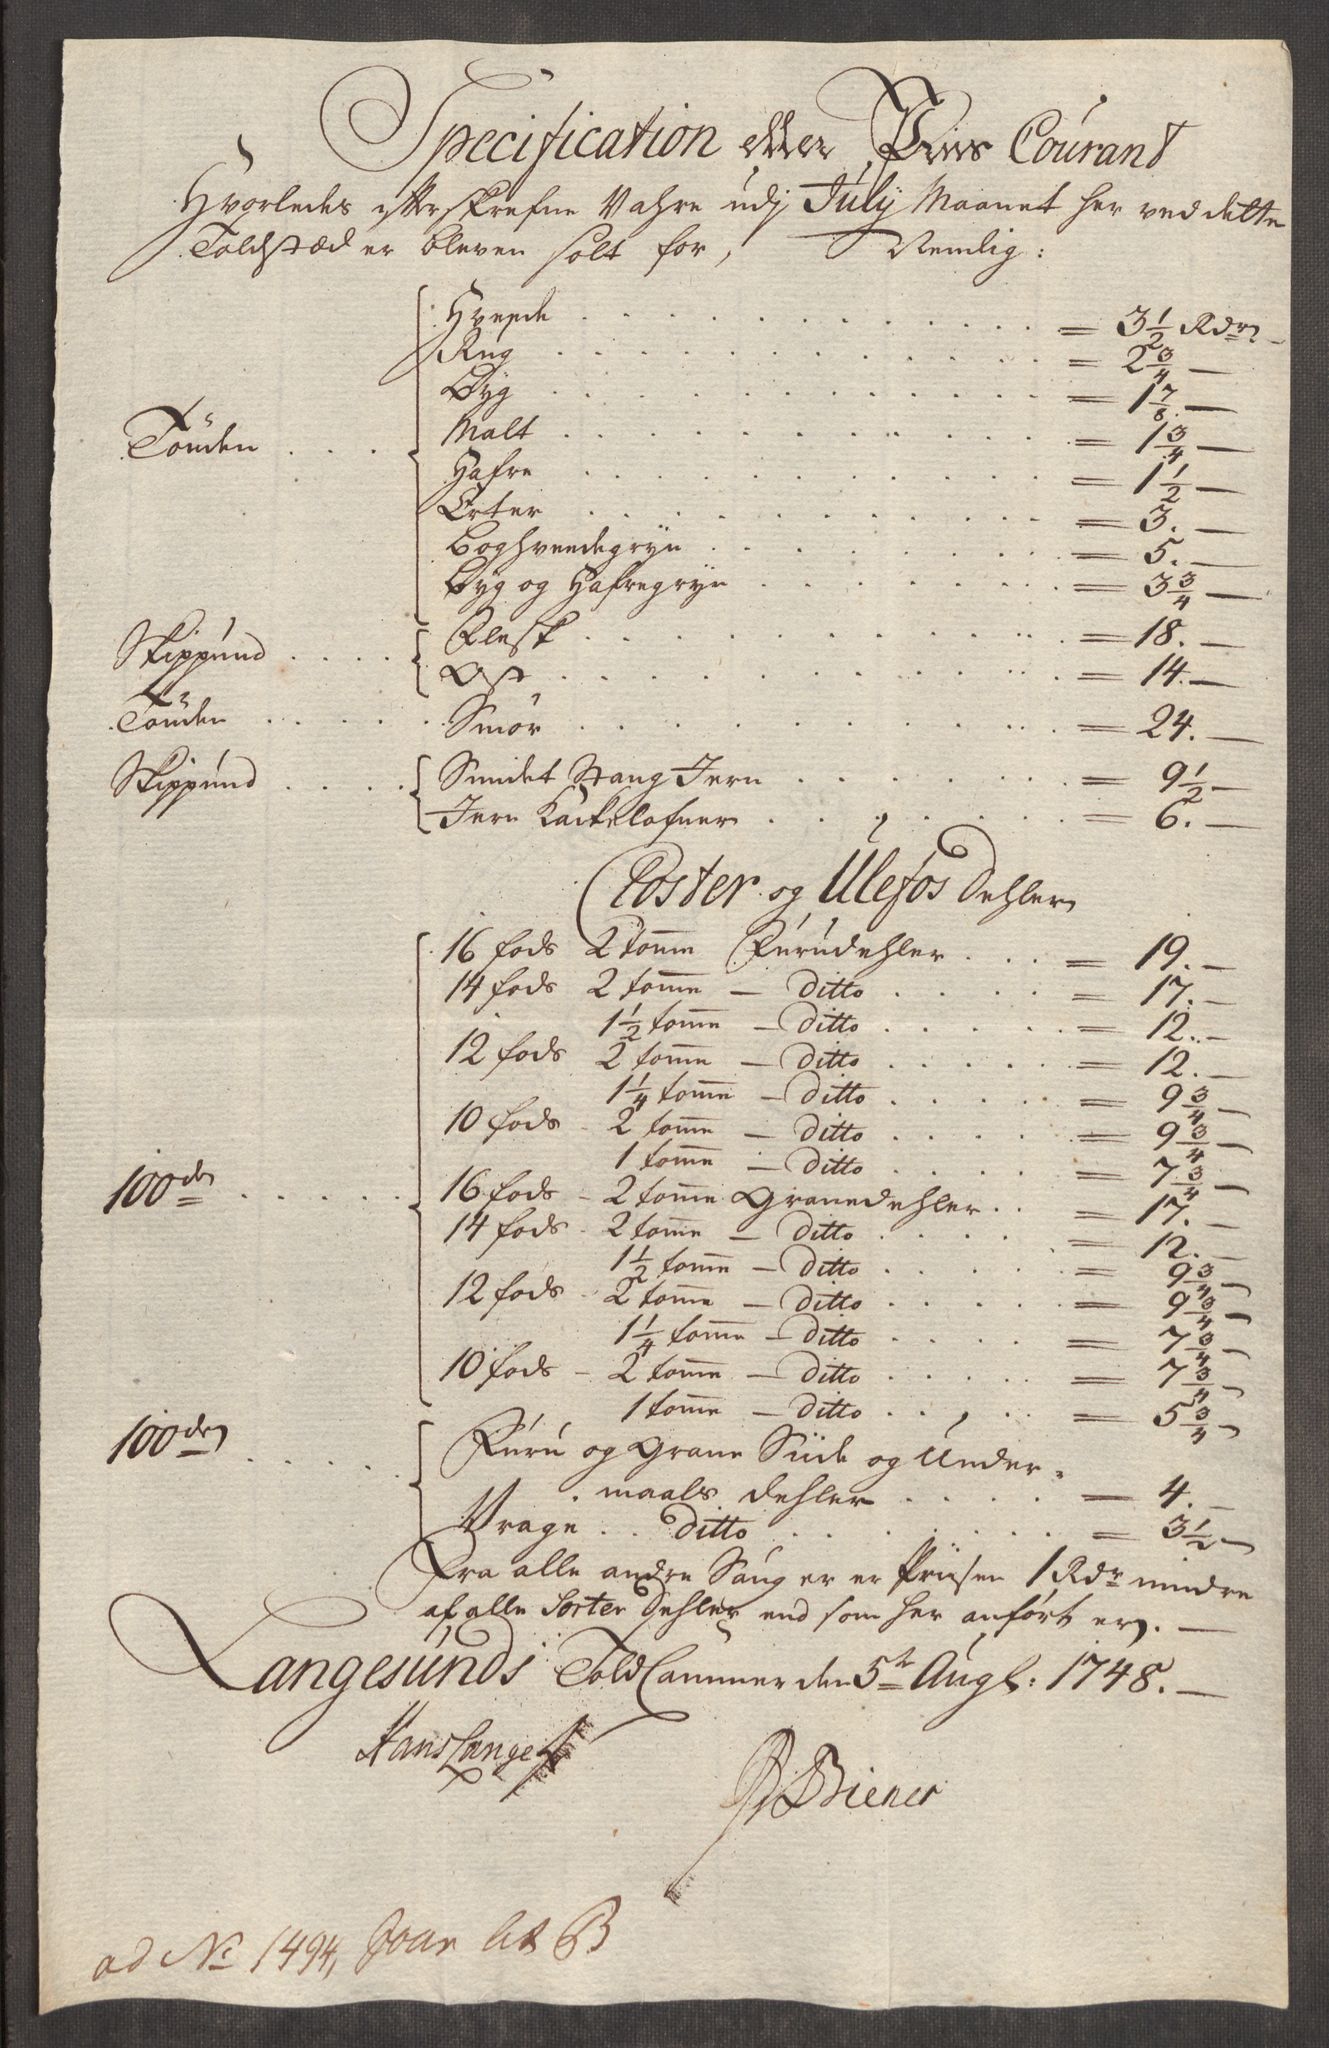 Specification eller Priis Courant
Hvorledes efterskrefne Vahre udj July Maanet her ved dette
Toldstæd er bleven solt for, Nemlig:
Tönden . . . Hvede . . . = 3 1/2 Rdr
Rug . . . = 2 3/4 —
Byg . . . = 1 7/8 —
Malt . . . = 1 3/4 —
Hafre . . . = 1 1/2 —
Erter . . . = 3. —
Boghvedegryn . . . = 5. —
Byg og Hafregryn . . . = 3 3/4 —
Skippund . . . Flesk . . . = 18. —
Ost . . . = 14. —
Tönden . . . Smör . . . = 24. —
Skippund . . . Smidet Stang Jern . . . = 9 1/2 —
Jern Kackelofner . . . = 6. —
Closter og Ulefos Dehler
16 fods 2 tomme Furudehler . . . = 19. —
14 fods 2 tomme — Ditto . . . = 17. —
1 1/2 tomme — Ditto . . . = 12. —
12 fods 2 tomme — Ditto . . . = 12. —
1 1/4 tomme — Ditto . . . = 9 3/4 —
10 fods - 2 tomme — Ditto . . . = 9 3/4 —
1 tomme — Ditto . . . = 7 3/4 —
100de . . . 16 fods - 2 tomme Granedehler . . = 17. —
14 fods - 2 tomme — Ditto . . . = 12. —
1 1/2 tomme — Ditto . . . = 9 3/4 —
12 fods - 2 tomme — Ditto . . . = 9 3/4 —
1 1/4 tomme — Ditto . . . = 7 3/4 —
10 fods - 2 tomme — Ditto . . . = 7 3/4 —
1 tomme — Ditto . . . = 5 3/4 —
100de . . . Furu og Grane Siide og Under-
maals Dehler . . . = 4. —
Vrage . . Ditto . . . = 3 1/2 —
Fra alle andre Sauger er Priisen 1 Rdr mindre
af alle Sorter Dehler end som her anfört er. —
Langesunds Told Cammer den 5te Augt: 1748. —
Hans Lange
Biener
ad No 1494, Lit B